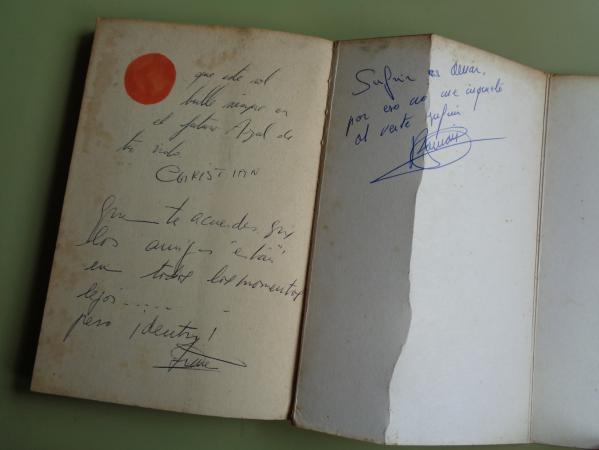 que este sol
brille siempre en
el futuro Azul de
tu vida
CHRISTIAN
Que te acuerdes que
los amigos "están"
en todos los momentos
lejos.....
pero ¡dentro!
Sufrir es desear,
por eso no me importó
al verte sufrir.